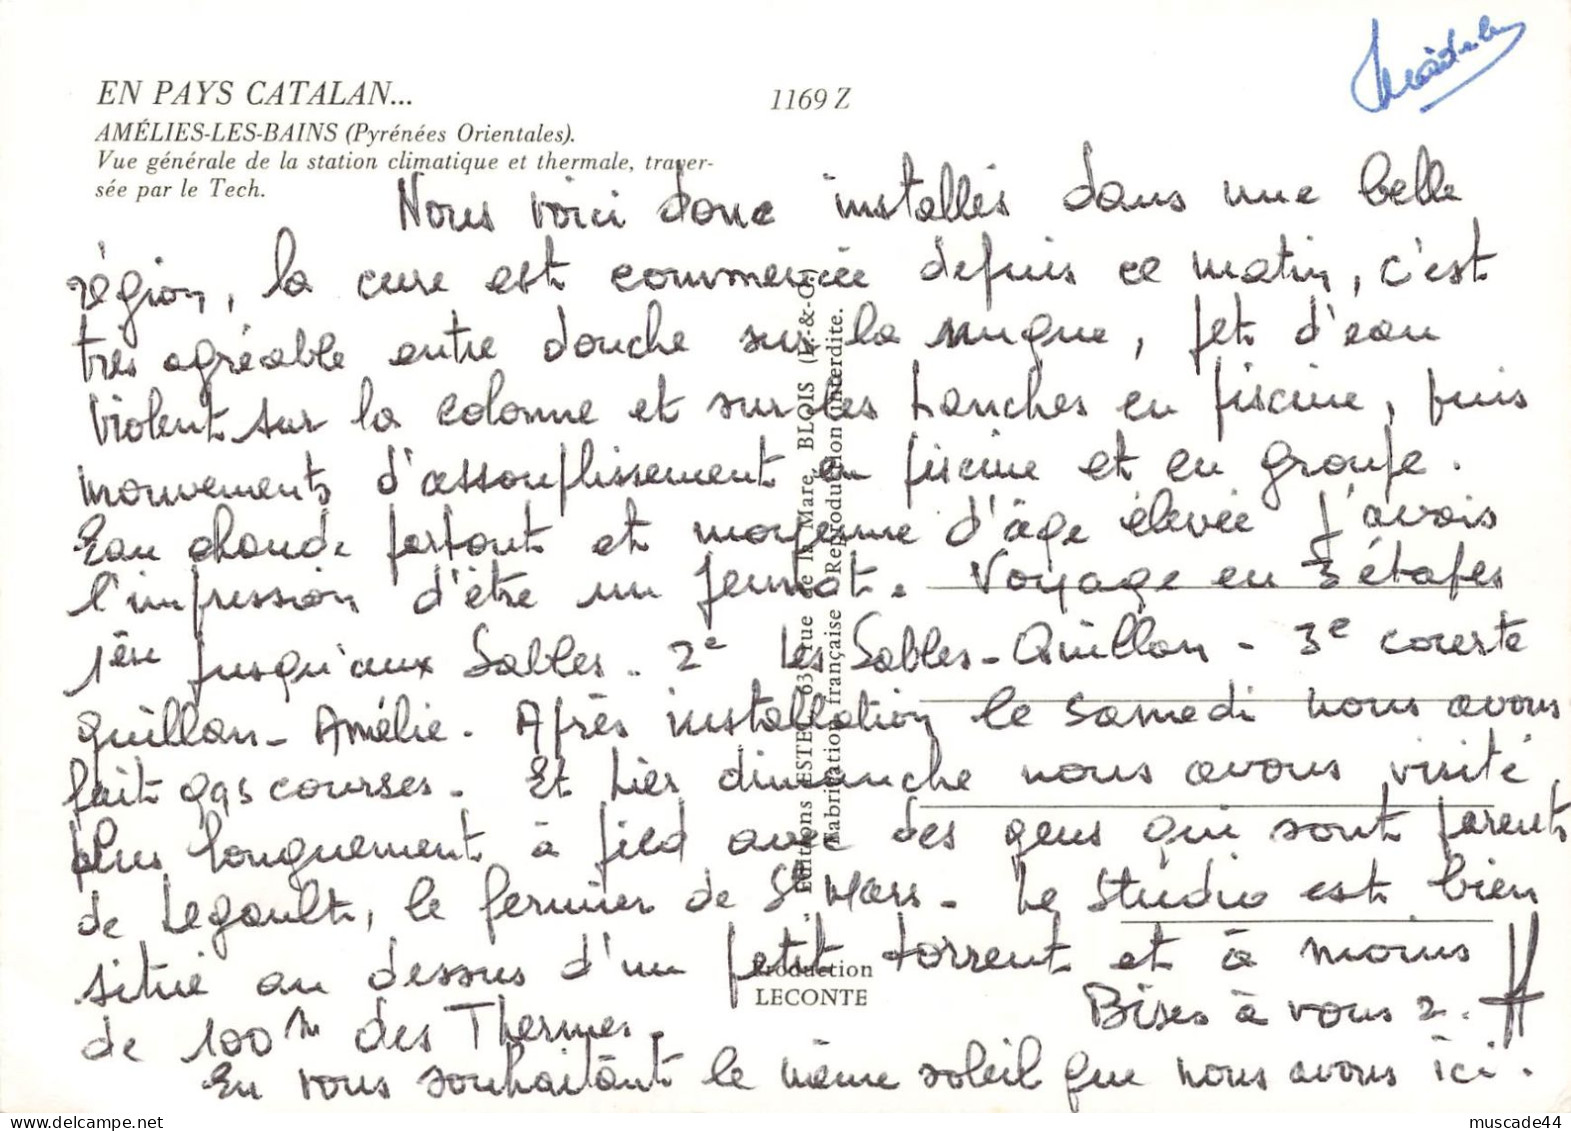 EN PAYS CATALAN...
1169 Z
AMÉLIES-LES-BAINS (Pyrénées Orientales).
Vue générale de la station climatique et thermale, traver-
sée par le Tech.
Nous voici donc installés dans une belle
région, la cure est commencée depuis ce matin, c'est
très agréable entre douche sur la nuque, jet d'eau
violent sur la colonne et sur les hanches en piscine, puis
mouvements d'assouplissement en piscine et en groupe.
Eau chaude partout et moyenne d'âge élevée J'avais
l'impression d'être un jeunot. Voyage en 3 étapes
1ère jusqu'aux Sables. 2e Les Sables-Quillan - 3e courte
Quillan - Amélie. Après installation le samedi nous avons
fait qqs courses. Et hier dimanche nous avons visité
plus longuement à pied avec des gens qui sont parents
de Legault, le fermier de St Mars. Le Studio est bien
situé au dessus d'un petit torrent et à moins
de 100m des Thermes.
Bises à vous 2.
En vous souhaitant le même soleil que nous avons ici.
Editions ESTEL 63, rue de la Mare, BLOIS (L.-&-C.)
Fabrication française Reproduction interdite.
Production
LECONTE
muscade44